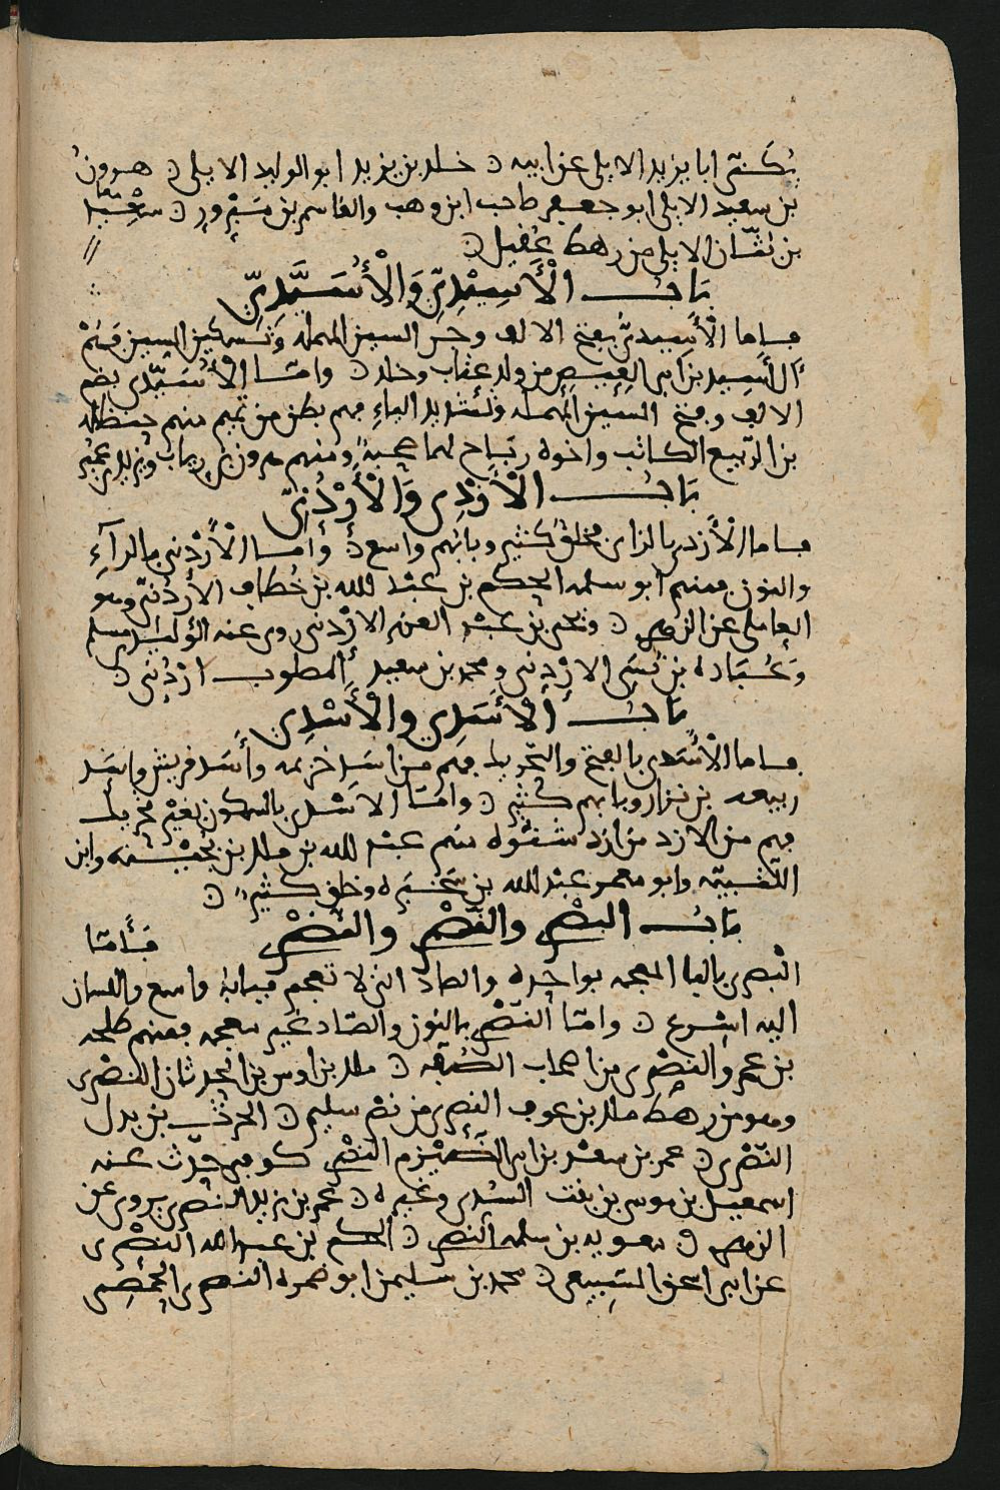 يُكَنَّى ابا يزيد الايلي عن ابيه ن خلد بن يزيد ابو الوليد الايلي ن هرون
بن سعيد الايلي ابو جعفر صاحب ابن وهب والقاسم بن مَبْرُورٍ ن سعيد
بن الايلي من رهط عُقيل ن
بَابُ الْأَسِيْدِيّ وَالْأُسَيَّدِيّ
فاما الْأَسِيديُّ بفتح الالف وجر السين المهمله وتسكين فهم
آل أَسِيد بن ابي العِيص من ولد عتاب وخلد ن وامّا الْأُسَيّدي بضم
الالف وفتح السين المهمله وتشديد الياءِ فهم بطن من تميم منهم حنظله
بن الرّبيع الكاتب واخوه ربَاح لهما صحبةٌ ومنهم بن ويزيد بن عمير
بَابُ الْأَزْدِي وَالْأُرْدُنِيّ
فاما الْأَزدي بالزاي فخلقٌ كثير وبابُهم واسع ن وأمّا الْأُرْدُني بالرآءِ
والنون فمنهم ابو سلمه الحكم بن عبد الله بن خُطاف الأُرْدُنيّ وهو
العاملي عن الزهري ن ويحيى بن عبد العزيز الاردني روى عنه الوَليد بن مسلم
وَعُبَاده بن نُسَي الاردني ومحمد بن سعيد المصلوب اردُني ن
بَابُ الْأَسَدِي والْأَسْدِي
فاما الْأَسَدي بالفتح والتحريك فهم من اسَد خزيمه وأَسَد قريش واسَد
ربيعه بن نزار وبابهم كثير ن وامّا الاسْدي بالسكون بغير تحريك
فهم من الازد من ازد شنُوه منهم عبد الله بن ملك بن بُحَيْنَه وابن
اللُّتْبيّه وابو معمر عبد الله بن سَخْبَره وخلق كثيرٌ ن
بَابُ البصْري والنّصْري والنّضْري فأمّا
البْصري بالبا المعجمه بواحده والصاد التي لا تعجم فبابهُ واسع واللسان
اليه اسْرع ن وامّا النّصْري بالنون والصّاد غير معجمه فمنهم طلحه
بن عمرو النصْري من اصحاب الصُّفّه ن ملك بن اوس بن الحدثان النصْري
وهو من رهط ملك بن عوف النصري من نصر سليم ن الحرث بن بدل
النّصْري ن عمر بن سعْد بن ابي النصْري كوفي حَدّث عنه
اسمعيل بن موسى بن بنت السُدي وغيره ن عمر بن يزيد النصْري يروي عن
الزهري ن معويه بن سلمه النصري ن الحكم بن عبد الله النصْري
عن ابي اسحق السَّبِيعي ن محمد بن سليمن ابو ضمره النصْري الحِمْصِي